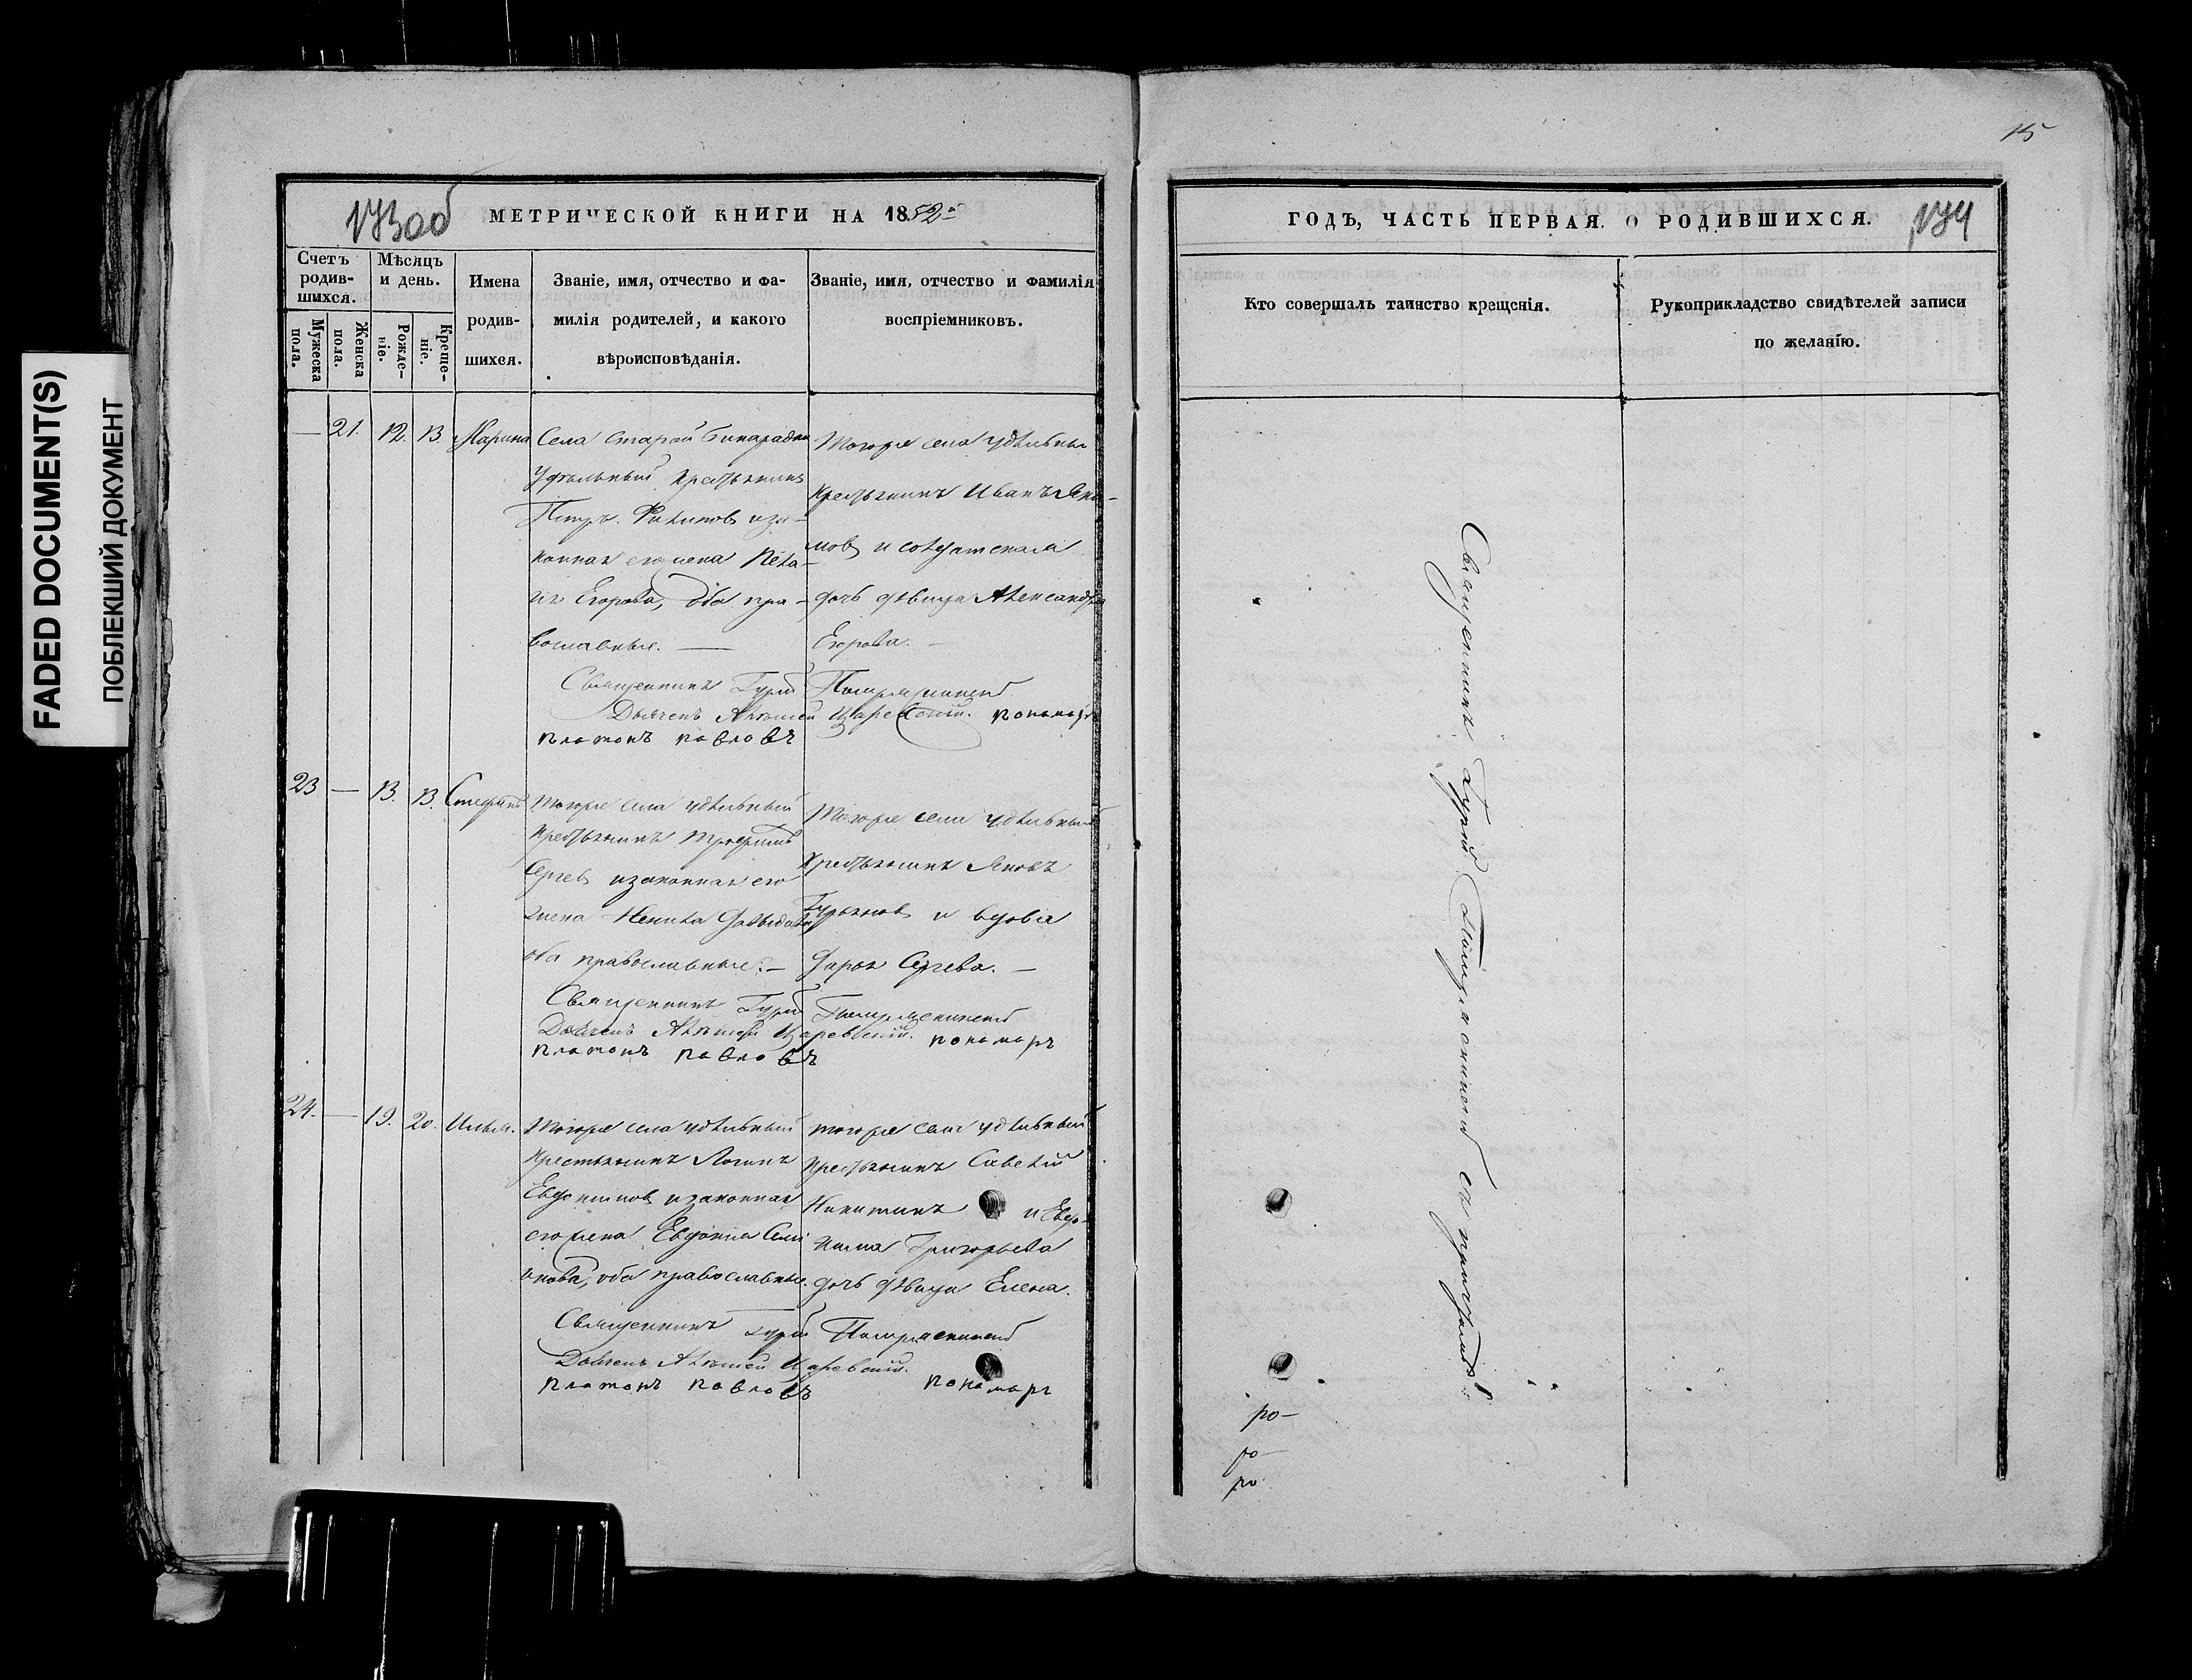 FADED DOCUMENT(S)
ПОБЛЕКШИЙ ДОКУМЕНТ
15
173об
МЕТРИЧЕСКОЙ КНИГИ НА 1852й
Счетъ родившихся.
Мужеска пола.
Женска пола.
Мѣсяцъ и день.
Рожденіе.
Крещеніе.
Имена родившихся.
Званіе, имя, отчество и фамилія родителей, и какого вѣроисповѣданія.
Званіе, имя, отчество и фамилія воспріемниковъ.
— 21. 12. 13. Марина
Села Старой Бинарадки
Удѣльный крестьянинъ
Петръ Филиповъ иза-
конная его жена Пела-
гія Егорова, оба пра-
вославные. —
Тогоже села удѣльный
крестьянинъ Иванъ Яки-
мовъ и солдатская
дочь дѣвица Александра
Егорова. —
Священникъ Гурій
Дьячекъ Алексѣй Царевскій. пономарь
платонъ павловъ
23 — 13. 13. Стефанъ
Тогоже села удѣльный
крестьянинъ Трофимъ
Сергѣевъ изаконная его
жена Ненила Давыдова
оба православные. —
Тогоже села удѣльный
крестьянинъ Яковъ
Гурьяновъ и вдова
Дарья Сергѣева. —
Священникъ Гурій
Дьячекъ Алексѣй Царевскій. пономарь
платонъ павловъ
24. — 19. 20. Илья.
Тогоже села удѣльный
крестьянинъ Логинъ
Евдокимовъ изаконная
его жена Евдокія Семі
онова, оба православные.
тогоже села удѣльный
крестьянинъ Савелій
Никитинъ и Евдо-
кима Григорьева
дочь дѣвица Елена.
Священникъ Гурій
Дьячекъ Алексѣй Царевскій.
платонъ павловъ пономарь
ГОДЪ, ЧАСТЬ ПЕРВАЯ. О РОДИВШИХСЯ.
174
Кто совершалъ таинство крещенія.
Рукоприкладство свидѣтелей записи по желанію.
Священникъ Гурій съ причтомъ
ро-
ро-
ро